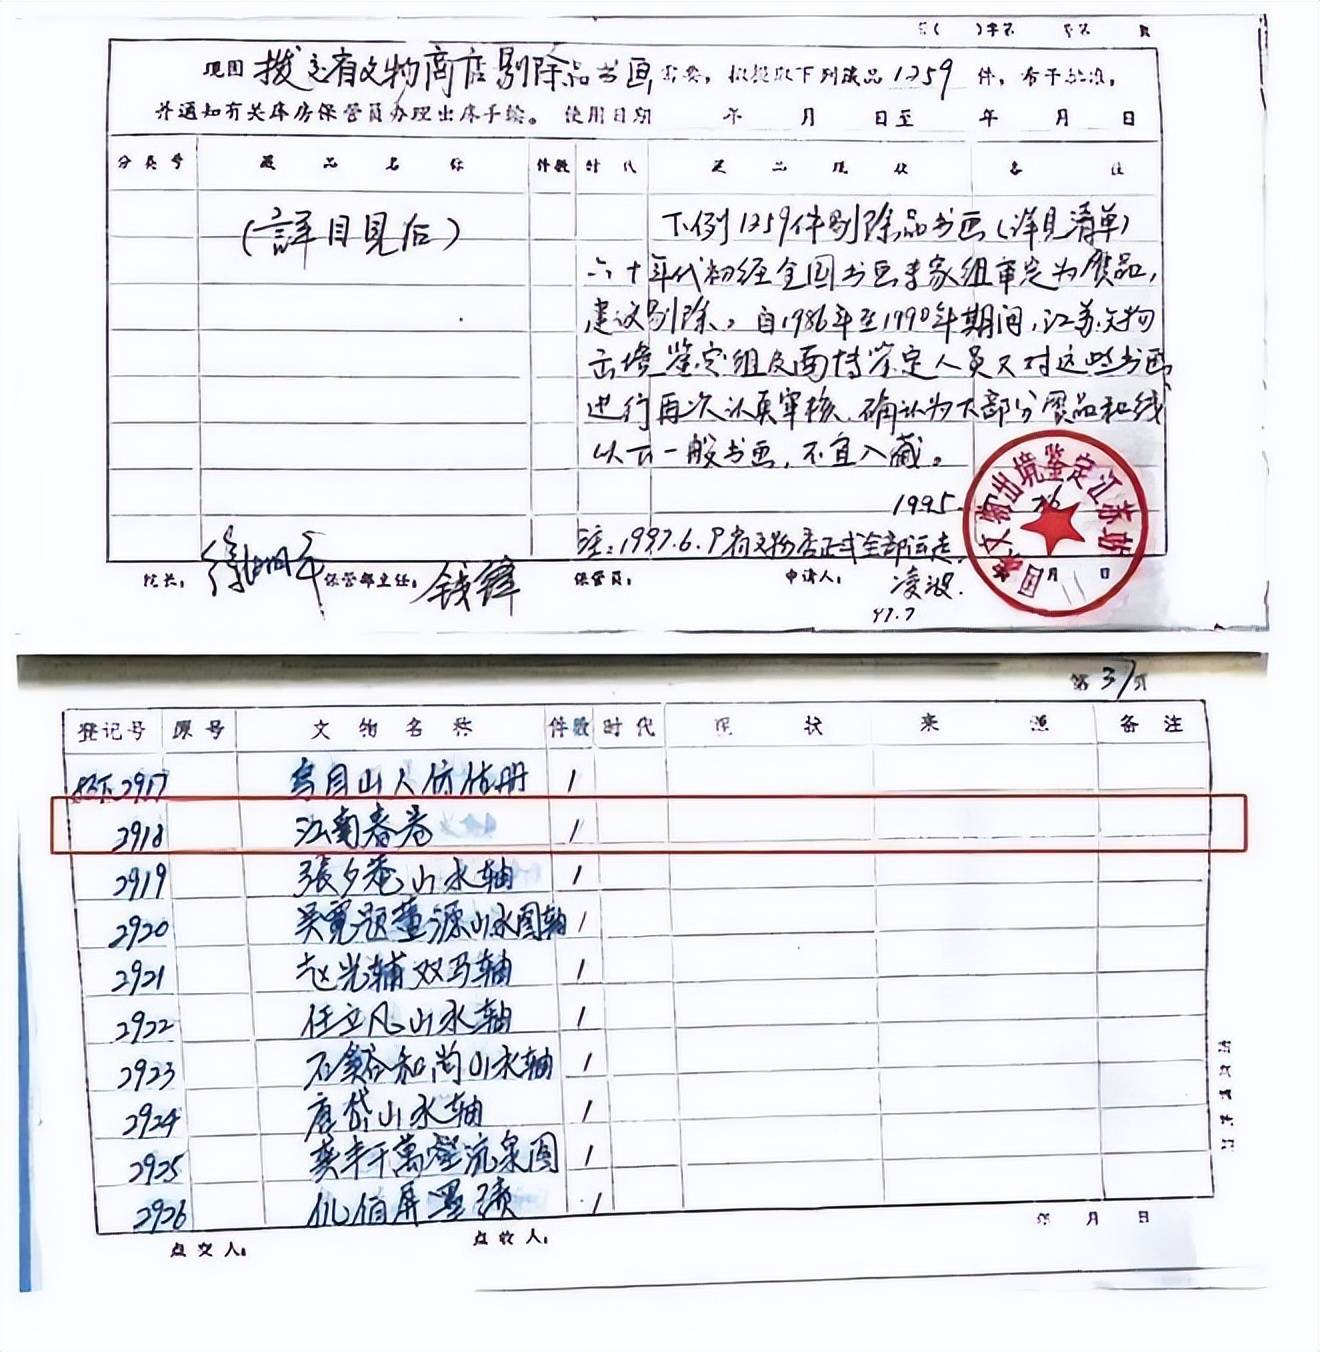 现因 拨交省文物商店剔除品书画 需要，拟提取下列藏品 1259 件，希予批准，
并通知有关库房保管员办理出库手续。 使用日期 年 月 日至 年 月 日
分类号 藏品名称 件数 时代 藏品现状 备注
（詳目見后）
下例1259件剔除品书画（详见清单）
六十年代初经全国书画专家组审定为贋品，
建议剔除。自1986年至1990年期间，江苏文物
出境鉴定组及南博鉴定人员又对这些书画
进行再次认真审核，确认为大部分贋品和线
以下一般书画，不宜入藏。
1995.
月 日
注：1997.6.9省文物 正式全部运走
院长： 徐湖平 保管部主任： 钱锋 保管员： 申请人： 凌波.
97.7
国家文物出境鉴定江苏站
第 31 页
登记号 原号 文物名称 件数 时代 现状 来源 备注
2917 烏目山人仿 册 1
2918 江南春卷 1
2919 張夕菴山水轴 1
2920 吴寬题董源山水图轴 1
2921 赵光辅双马轴 1
2922 任立凡山水轴 1
2923 石谿和尚山水轴 1
2924 唐岱山水轴 1
2925 龚半千萬壑流泉图 1
2926 仇伯屏墨蹟 1
年 月 日
点交人： 点收人：